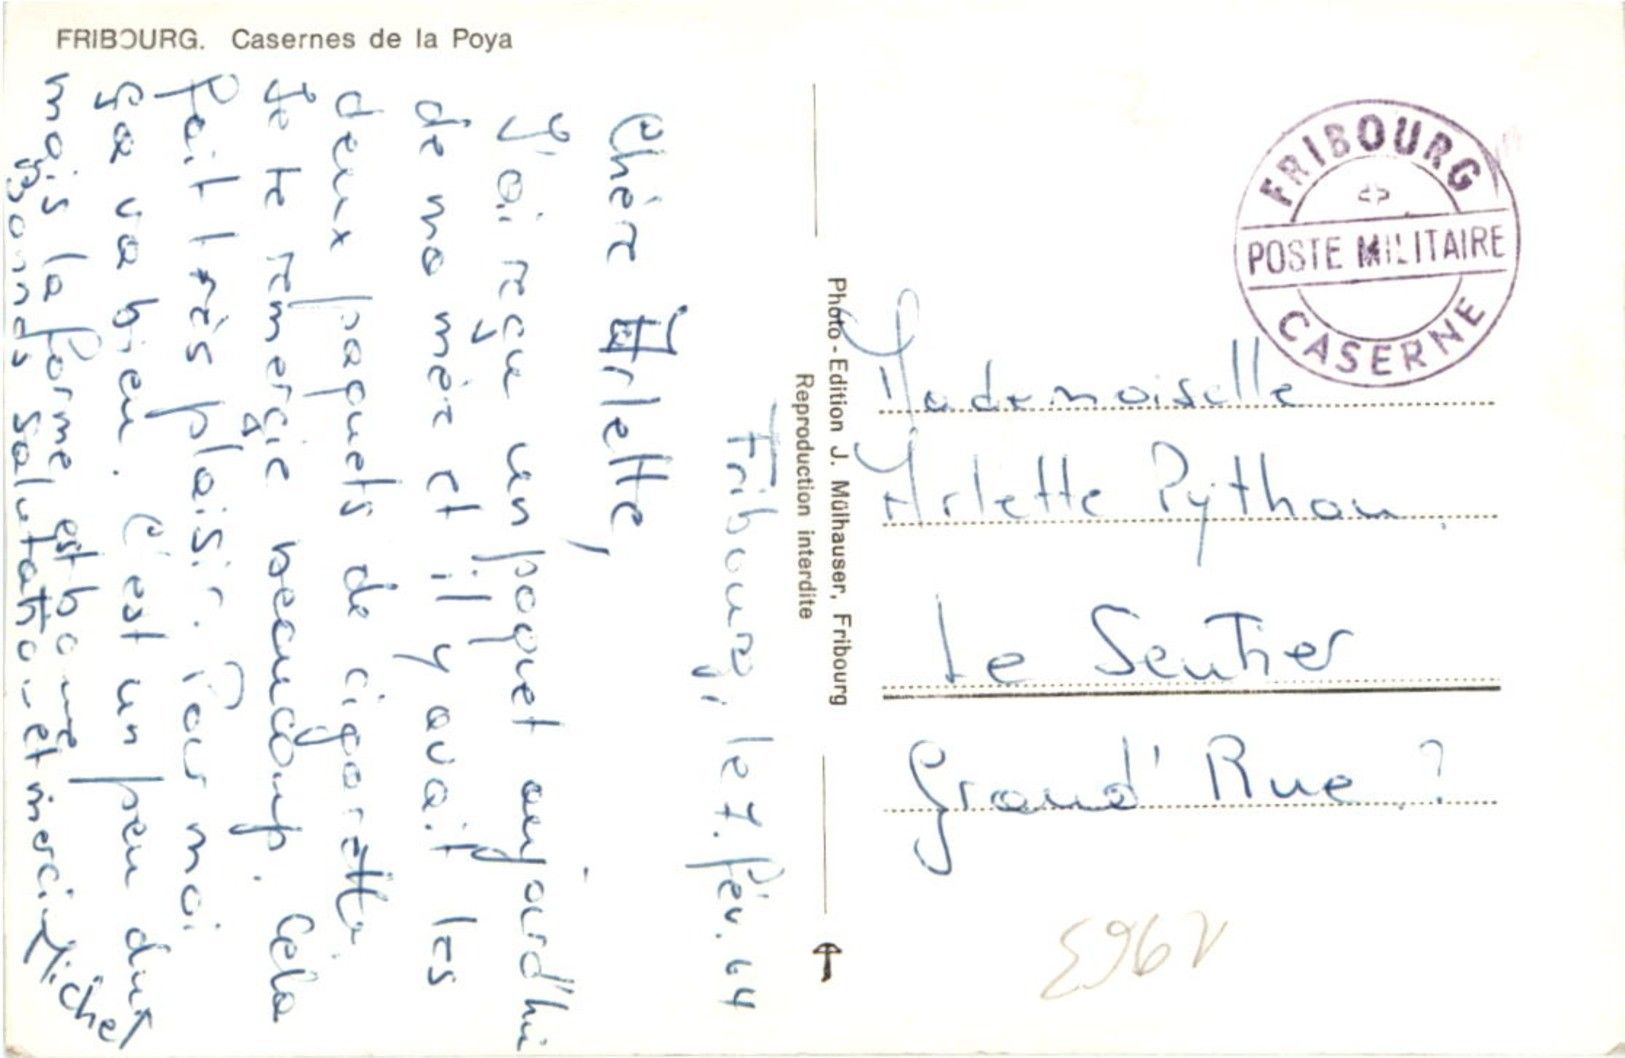 FRIBOURG. Casernes de la Poya
Fribourg, le 7. fév. 64
Chère Arlette,
J'ai reçu un paquet aujourd'hui
de ma mère et il y avait les
deux paquets de cigarette.
Je te remercie beaucoup. Cela
fait très plaisir. Pour moi
ça va bien. C'est un peu dur
mais la forme est bonne
Bonnes salutations et merci Michel
Photo-Edition J. Mülhauser, Fribourg
Reproduction interdite
FRIBOURG
POSTE MILITAIRE
CASERNE
Mademoiselle
Arlette Python.
Le Sentier
Grand' Rue ?